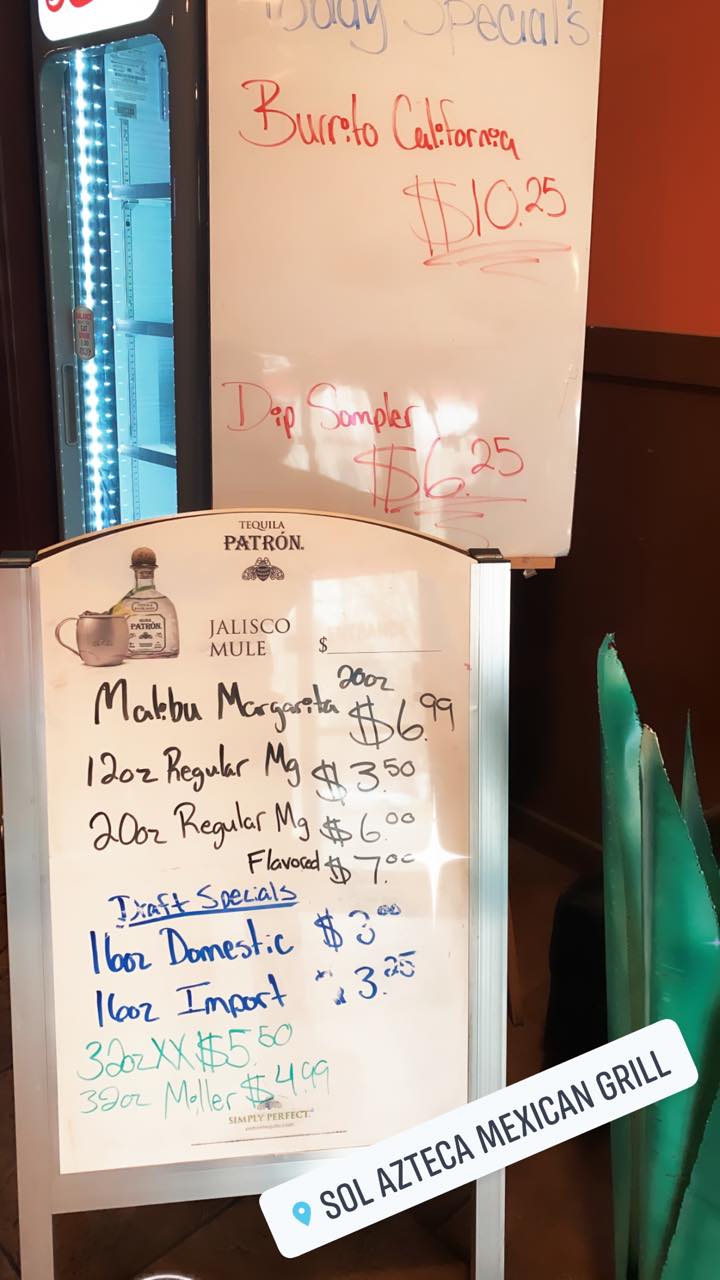 Special's
Burrito California
$10.25
Dip Sampler
$6.25
TEQUILA
PATRÓN.
JALISCO
MULE $
Malibu Margarita 20oz $6.99
12oz Regular Mg $3.50
20oz Regular Mg $6.00
Flavored $7.00
Draft Specials
16oz Domestic $3.00
16oz Import 3.25
32oz XX $5.50
32oz Miller $4.99
SIMPLY PERFECT.
SOL AZTECA MEXICAN GRILL